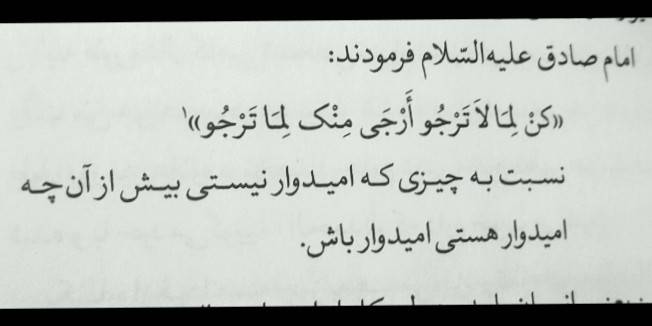 امام صادق علیه‌السّلام فرمودند:
«کنْ لِمَا لاَ تَرْجُو أَرْجَی مِنْک لِمَا تَرْجُو»¹
نسبت به چیزی که امیدوار نیستی بیش از آن چه
امیدوار هستی امیدوار باش.